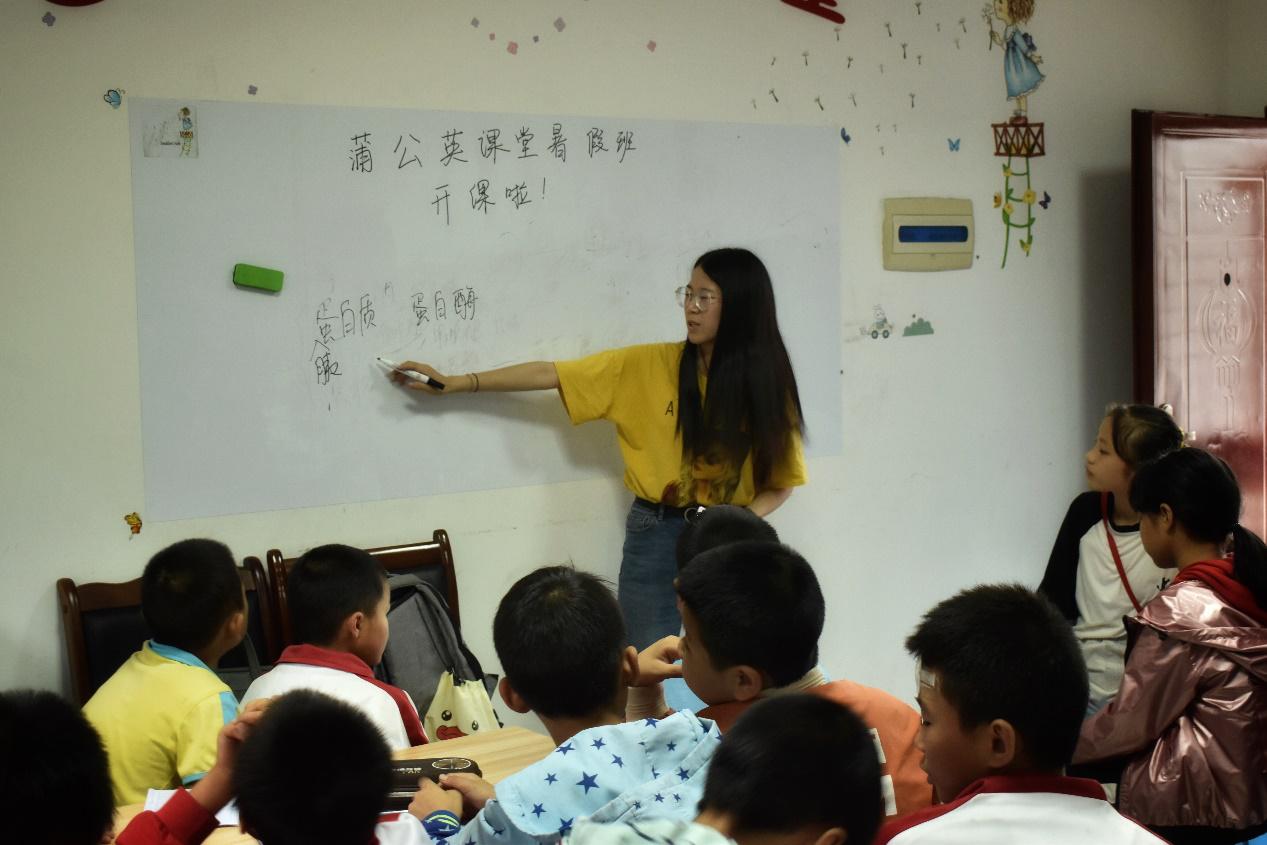 蒲公英课堂暑假班
开课啦！
蛋白质 蛋白酶
胰